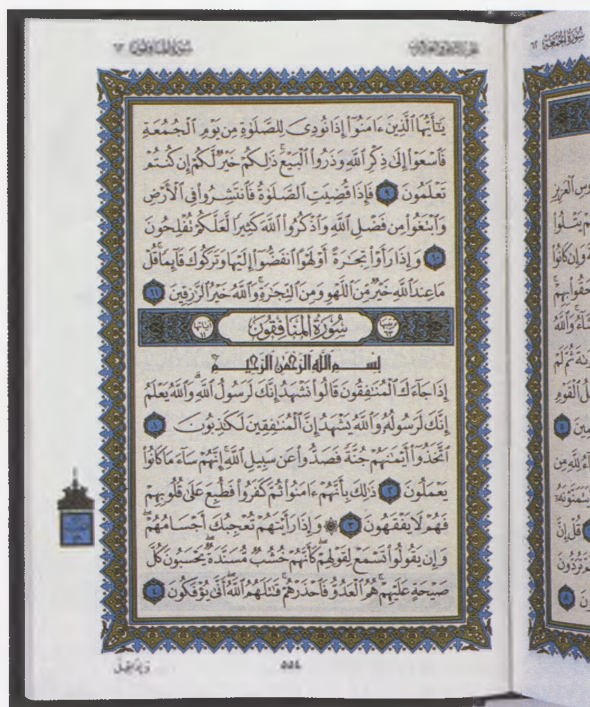 سُورَةُ المُنَافِقُونَ ٦٣
الجُزْءُ الثَّامِنُ وَالعِشْرُونَ
يَٰٓأَيُّهَا ٱلَّذِينَ ءَامَنُوٓا۟ إِذَا نُودِىَ لِلصَّلَوٰةِ مِن يَوْمِ ٱلْجُمُعَةِ
فَٱسْعَوْا۟ إِلَىٰ ذِكْرِ ٱللَّهِ وَذَرُوا۟ ٱلْبَيْعَ ۚ ذَٰلِكُمْ خَيْرٌ لَّكُمْ إِن كُنتُمْ
تَعْلَمُونَ ٩ فَإِذَا قُضِيَتِ ٱلصَّلَوٰةُ فَٱنتَشِرُوا۟ فِى ٱلْأَرْضِ
وَٱبْتَغُوا۟ مِن فَضْلِ ٱللَّهِ وَٱذْكُرُوا۟ ٱللَّهَ كَثِيرًا لَّعَلَّكُمْ تُفْلِحُونَ
١٠ وَإِذَا رَأَوْا۟ تِجَٰرَةً أَوْ لَهْوًا ٱنفَضُّوٓا۟ إِلَيْهَا وَتَرَكُوكَ قَآئِمًا ۚ قُلْ
مَا عِندَ ٱللَّهِ خَيْرٌ مِّنَ ٱللَّهْوِ وَمِنَ ٱلتِّجَٰرَةِ ۚ وَٱللَّهُ خَيْرُ ٱلرَّٰزِقِينَ ١١
سُورَةُ المُنَافِقُونَ
بِسْمِ ٱللَّهِ ٱلرَّحْمَٰنِ ٱلرَّحِيمِ
إِذَا جَآءَكَ ٱلْمُنَٰفِقُونَ قَالُوا۟ نَشْهَدُ إِنَّكَ لَرَسُولُ ٱللَّهِ ۗ وَٱللَّهُ يَعْلَمُ
إِنَّكَ لَرَسُولُهُۥ وَٱللَّهُ يَشْهَدُ إِنَّ ٱلْمُنَٰفِقِينَ لَكَٰذِبُونَ ١
ٱتَّخَذُوٓا۟ أَيْمَٰنَهُمْ جُنَّةً فَصَدُّوا۟ عَن سَبِيلِ ٱللَّهِ ۚ إِنَّهُمْ سَآءَ مَا كَانُوا۟
يَعْمَلُونَ ٢ ذَٰلِكَ بِأَنَّهُمْ ءَامَنُوا۟ ثُمَّ كَفَرُوا۟ فَطُبِعَ عَلَىٰ قُلُوبِهِمْ
فَهُمْ لَا يَفْقَهُونَ ٣ ۞ وَإِذَا رَأَيْتَهُمْ تُعْجِبُكَ أَجْسَامُهُمْ ۖ
وَإِن يَقُولُوا۟ تَسْمَعْ لِقَوْلِهِمْ ۖ كَأَنَّهُمْ خُشُبٌ مُّسَنَّدَةٌ ۖ يَحْسَبُونَ كُلَّ
صَيْحَةٍ عَلَيْهِمْ ۚ هُمُ ٱلْعَدُوُّ فَٱحْذَرْهُمْ ۚ قَٰتَلَهُمُ ٱللَّهُ ۖ أَنَّىٰ يُؤْفَكُونَ ٤
٥٥٤
وَإِذَا قِيلَ
سُورَةُ الجُمُعَةِ ٦٢